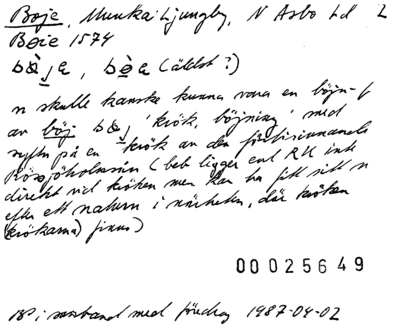 Boje, Munka Ljungby, N Åsbo hd L
Bøie 1574
bǫ̀ja, bø̀a (äldst?)
n skulle kanske kunna vara en böjn-f
av böj bøj 'krök, böjning' med
syftn på en krök av den förbirinnande
Rössjöholmsån (beb ligger enl RK inte
direkt vid kröken men kan ha fått sitt n
efter ett naturn i närheten, där kröken
(krökarna) finns)
00025649
i samband med föredrag 1987-04-02